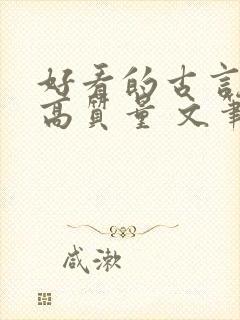 好看的古言
高质量 文笔
咸漱